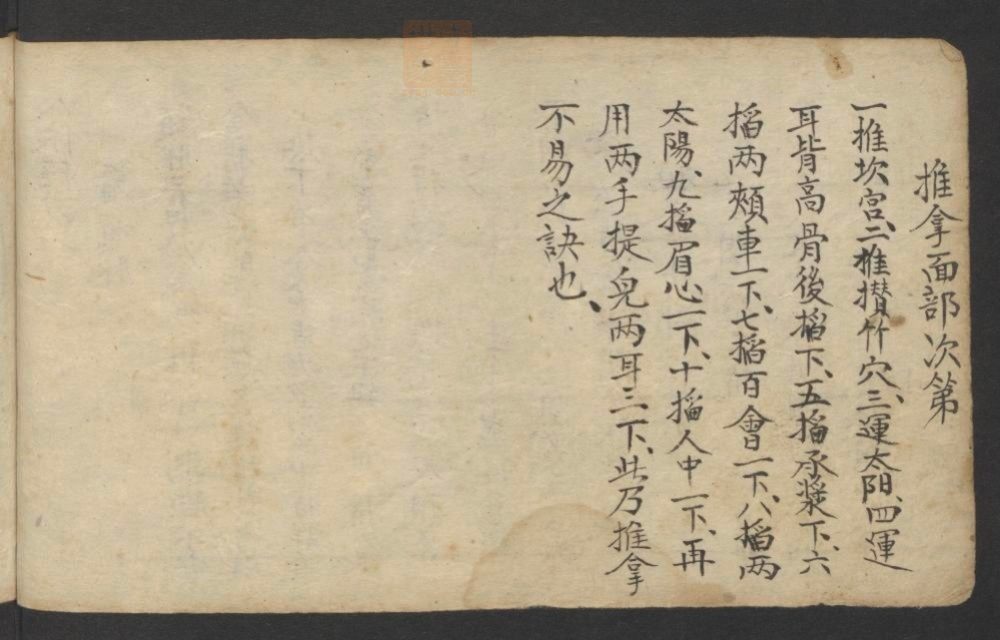 推拿面部次第
一推坎宫、二推攅竹穴、三運太阳、四運
耳背高骨後搯下、五搯承漿下、六
搯两頰車一下、七搯百會一下、八搯两
太陽、九搯眉心一下、十搯人中一下、再
用两手提兒两耳三下、此乃推拿
不易之訣也、